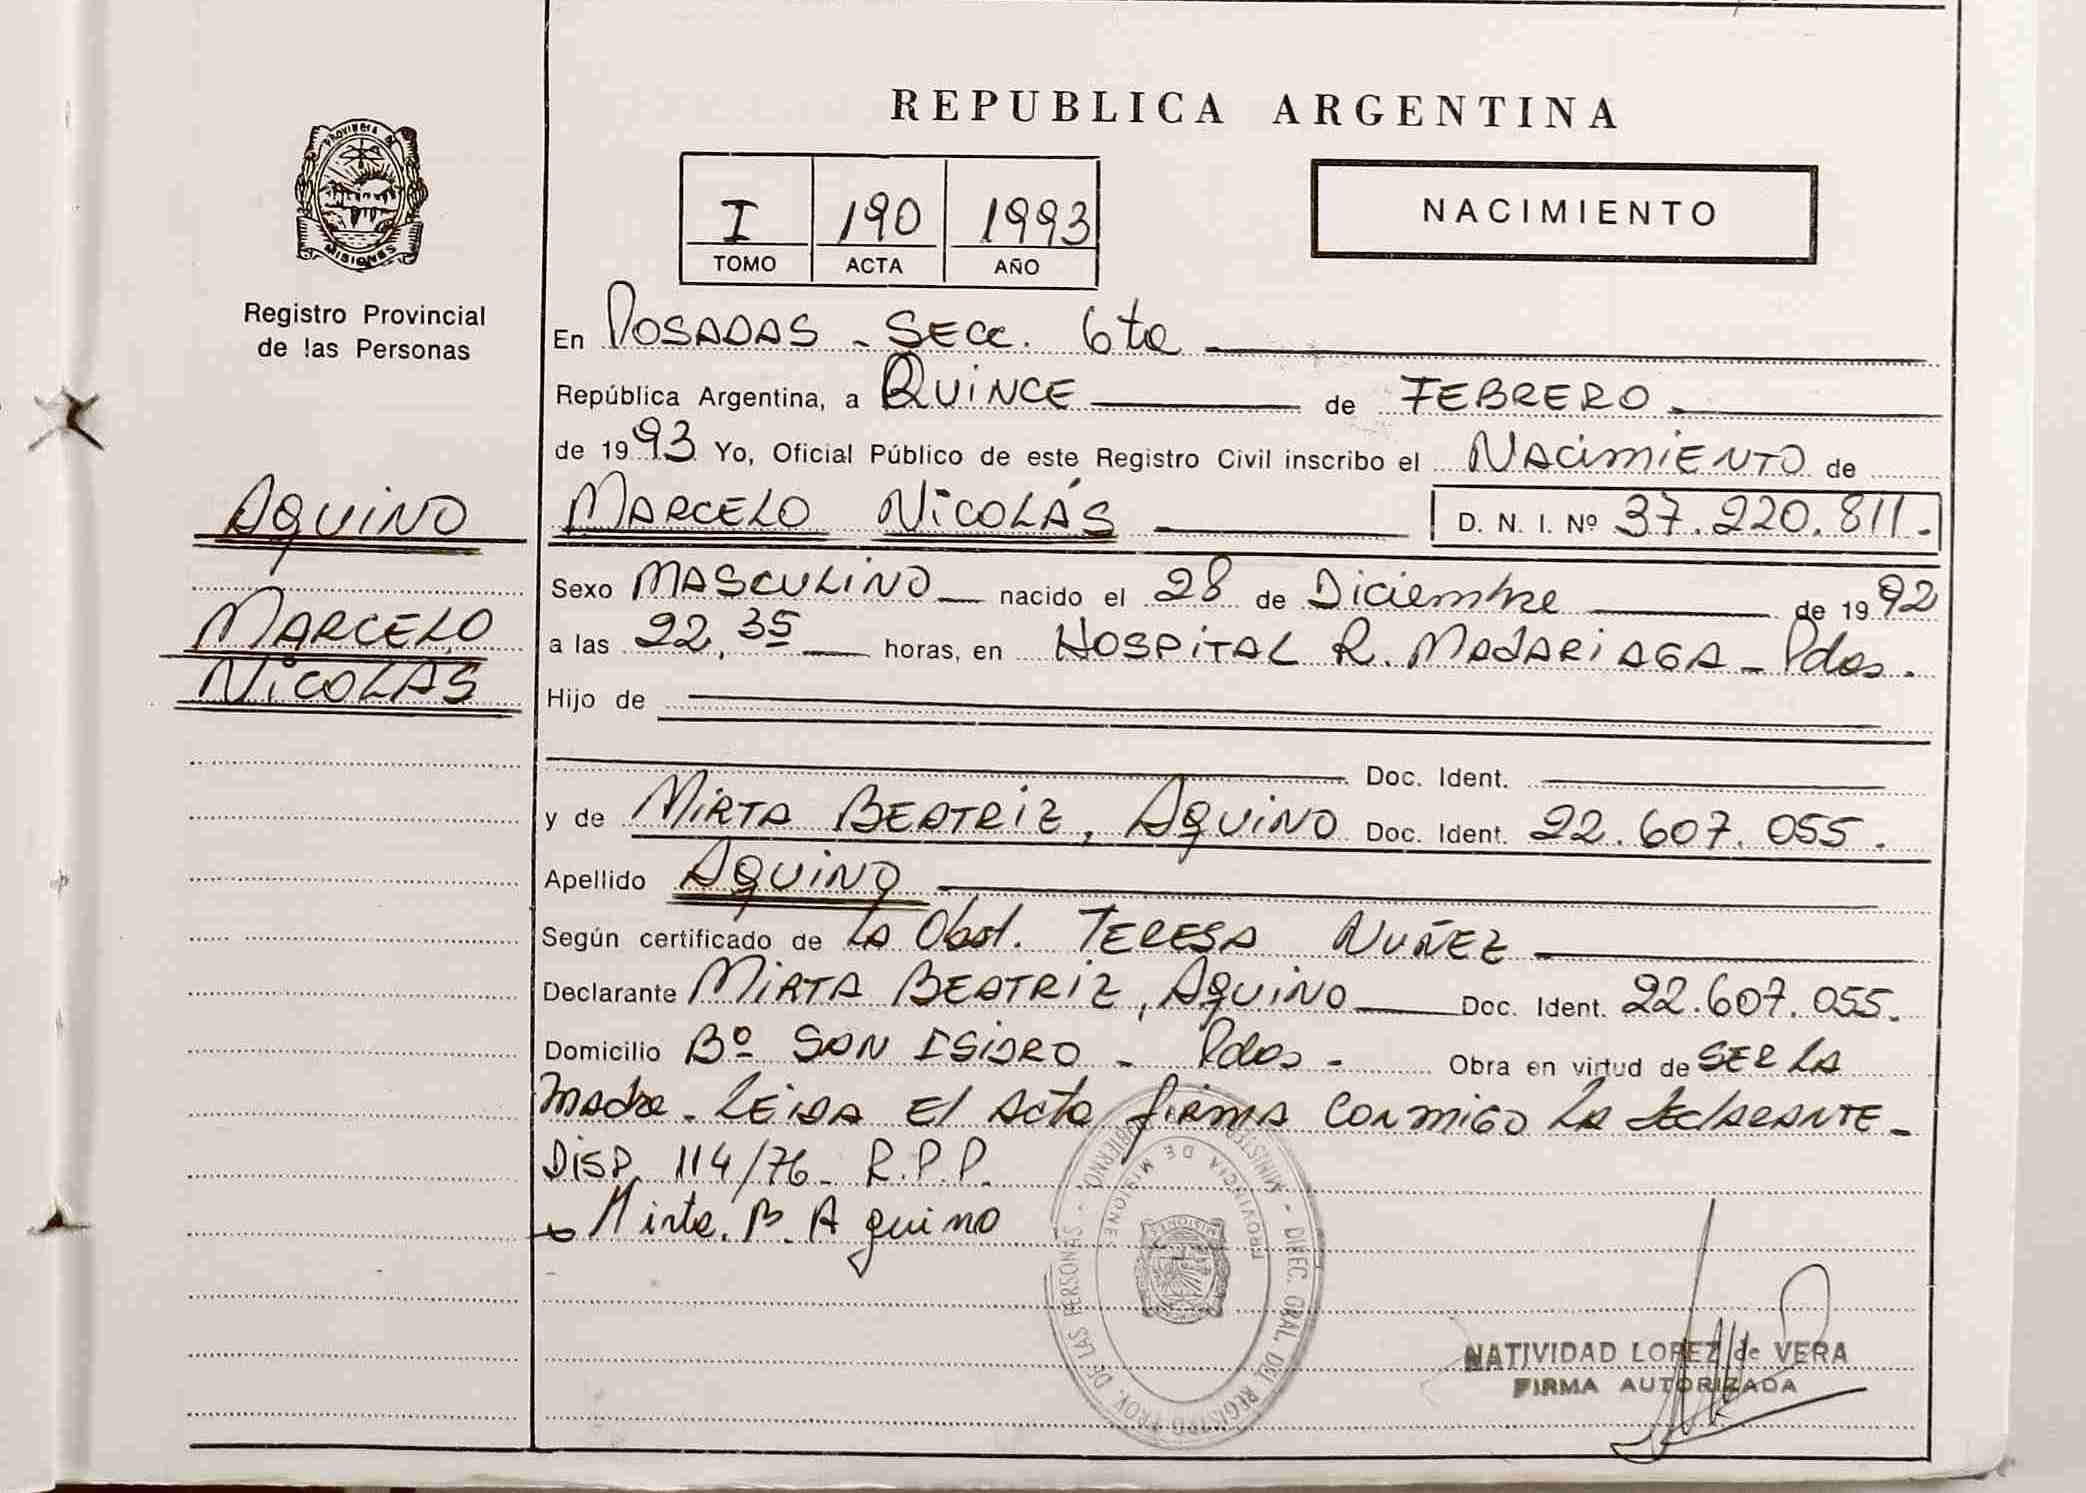 REPUBLICA ARGENTINA
Provincia de
MISIONES
Registro Provincial
de las Personas
I 190 1993
TOMO ACTA AÑO
NACIMIENTO
En POSADAS - SECC. 6ta
República Argentina, a QUINCE de FEBRERO
de 1993 Yo, Oficial Público de este Registro Civil inscribo el NACIMIENTO de
AQUINO
MARCELO NICOLÁS D. N. I. Nº 37.220.811.
MARCELO
NICOLAS
Sexo MASCULINO nacido el 28 de Diciembre de 1992
a las 22,35 horas, en HOSPITAL R. MADARIAGA - Pdas.
Hijo de
Doc. Ident.
y de MIRTA BEATRIZ, AQUINO Doc. Ident. 22.607.055.
Apellido AQUINO
Según certificado de LA Obst. TERESA NUÑEZ
Declarante MIRTA BEATRIZ, AQUINO Doc. Ident. 22.607.055.
Domicilio Bº SAN ISIDRO - Pdas - Obra en virtud de SER LA
madre - LEIDA El Acta firma CONMIGO LA DECLARANTE -
DISP. 114/76 - R.P.P.
Mirta. B. Aquino
MINISTERIO GOBIERNO - DIREC. GRAL. DEL REGISTRO PROV. DE LAS PERSONAS -
PROVINCIA DE MISIONES
MISIONES
NATIVIDAD LOPEZ de VERA
FIRMA AUTORIZADA